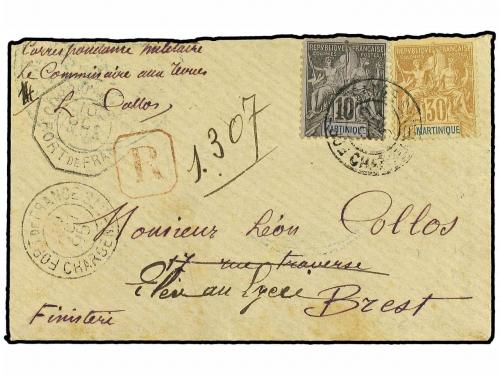 Correspondance militaire
Le Commissaire aux
L. Collos
REPUBLIQUE FRANÇAISE
COLONIES POSTES
10
MARTINIQUE
REPUBLIQUE FRANÇAISE
30
MARTINIQUE
FORT DE FRA
R
1.307
FORT DE FRANCE
CHARGE
Monsieur Léon Collos
17 rue traverse
Elève au Lycée
Brest
Finistère